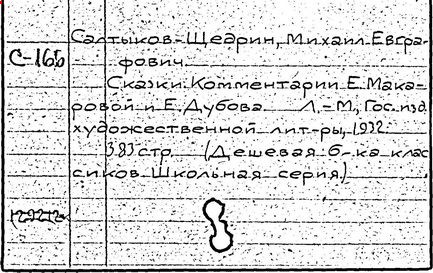 Салтыков-Щедрин, Михаил Евгра-
С-16б
фович
Сказки. Комментарии Е. Мака-
ровой и Е. Дубова Л.-М., Гос. изд.
художественной лит-ры, 1932.
383 стр. (Дешевая б-ка клас
сиков. Школьная серия)